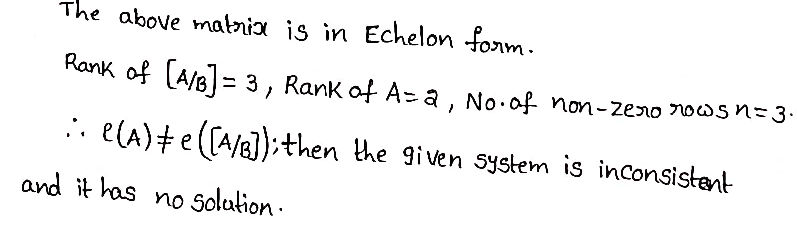 The above matrix is in Echelon form.
Rank of [A/B] = 3, Rank of A = 2, No. of non-zero rows n = 3.
∴ ρ(A) ≠ ρ([A/B]); then the given system is inconsistent
and it has no solution.